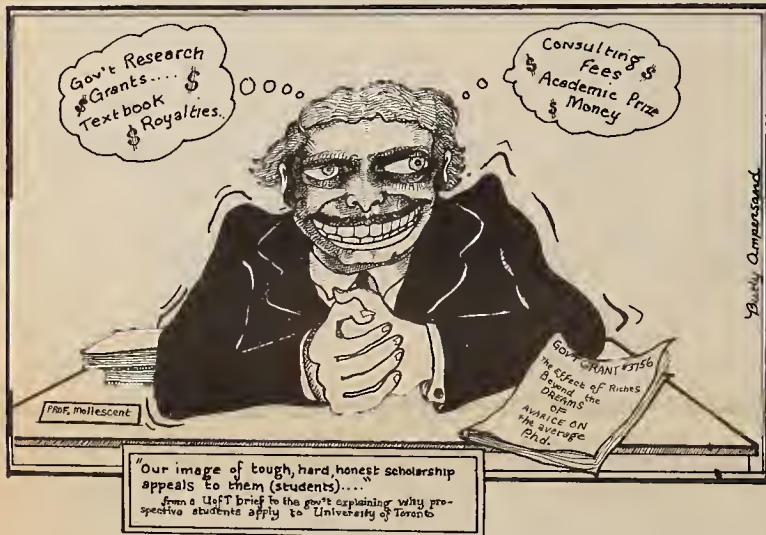 Gov't Research
$Grants.... $
Textbook
$ Royalties..
Consulting $
Fees
$ Academic Prize
$ Money
Butly Ampersand
GOV'T GRANT #3756
The Effect of Riches
Beyond the
DREAMS
OF
AVARICE ON
the average
P.hd.
PROF. Mollescent
"Our image of tough, hard, honest scholarship
appeals to them (students)...."
from a UofT brief to the gov't explaining why pro-
spective students apply to University of Toronto